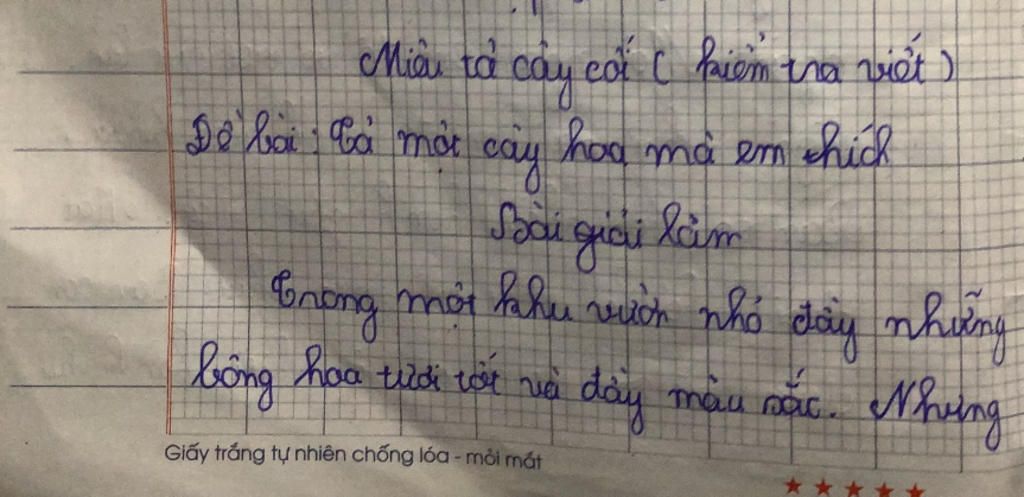 Miêu tả cây cối ( kiểm tra viết )
Đề bài : Tả một cây hoa mà em thích
Bài giải làm
Trong một khu vườn nhỏ đầy những
bông hoa tươi tốt và đầy màu sắc. Nhưng
Giấy trắng tự nhiên chống lóa - mỏi mắt